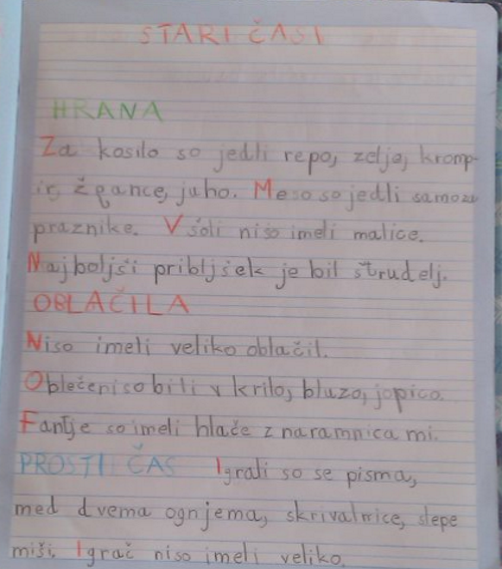 STARI ČASI
HRANA
Za kosilo so jedli repo, zelje, kromp-
ir, žgance, juho. Meso so jedli samo za
praznike. V šoli niso imeli malice.
Najboljši pribljšek je bil štrudelj.
OBLAČILA
Niso imeli veliko oblačil.
Oblečeni so bili v krilo, bluzo, jopico.
Fantje so imeli hlače z naramnica mi.
PROSTI ČAS Igrali so se pisma,
med dvema ognjema, skrivalnice, slepe
miši. Igrač niso imeli veliko.